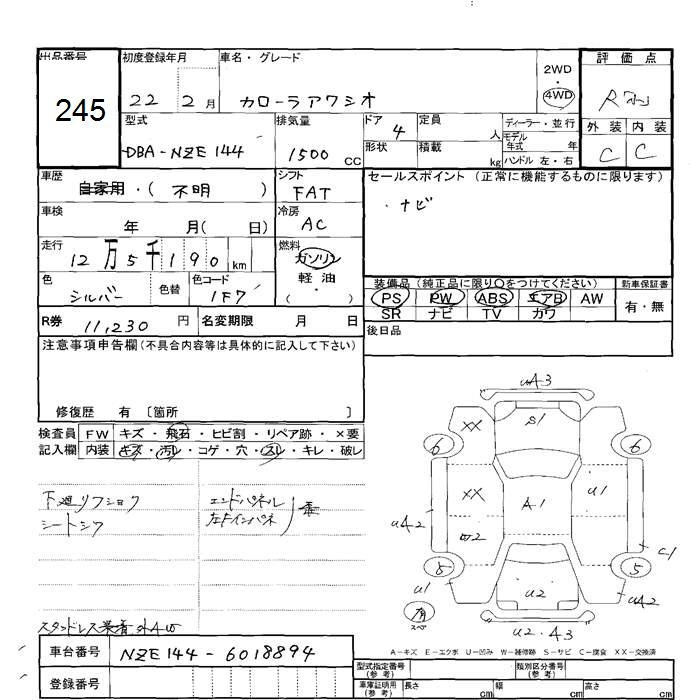 出品番号 初度登録年月 車名・グレード 評価点
245
22 2月 カローラアクシオ
2WD
・
4WD
R
型式 排気量 ドア 定員 ディーラー・並行 外装 内装
DBA-NZE144 1500 CC 4 人 モデル年式 年
形状 積載 kg ハンドル 左・右 C C
車歴 自家用・(不明) シフト FAT
セールスポイント(正常に機能するものに限ります)
・ナビ
車検 年 月( 日) 冷房 AC
走行 12万5千190 km 燃料 ガソリン
軽油
・
( )
色 シルバー 色替 色コード 1F7
装備品(純正品に限り○をつけてください) 新車保証書
PS PW ABS エアB AW 有・無
SR ナビ TV カワ
R券 11,230 円 名変期限 月 日
後日品
注意事項申告欄(不具合内容等は具体的に記入して下さい)
修復歴 有 〔箇所 〕
検査員 FW キズ・飛石・ヒビ割・リペア跡・×要
記入欄 内装 キズ・汚レ・コゲ・穴・スレ・キレ・破レ
下廻リフショク
シートシワ
エンドパネル
左F インパネ
スタッドレス装着
uA3
S1
XX
6
6
XX
A1
u1
uA2
C1
u1
u2
5
uA2
有
スペ
u2・A3
A-キズ E-エクボ U-凹み W-補修跡 S-サビ C-腐食 XX-交換済
車台番号 NZE144-6018894
登録番号
型式指定番号(参考) 類別区分番号(参考)
車庫証明用(参考) 長さ cm 幅 cm 高さ cm